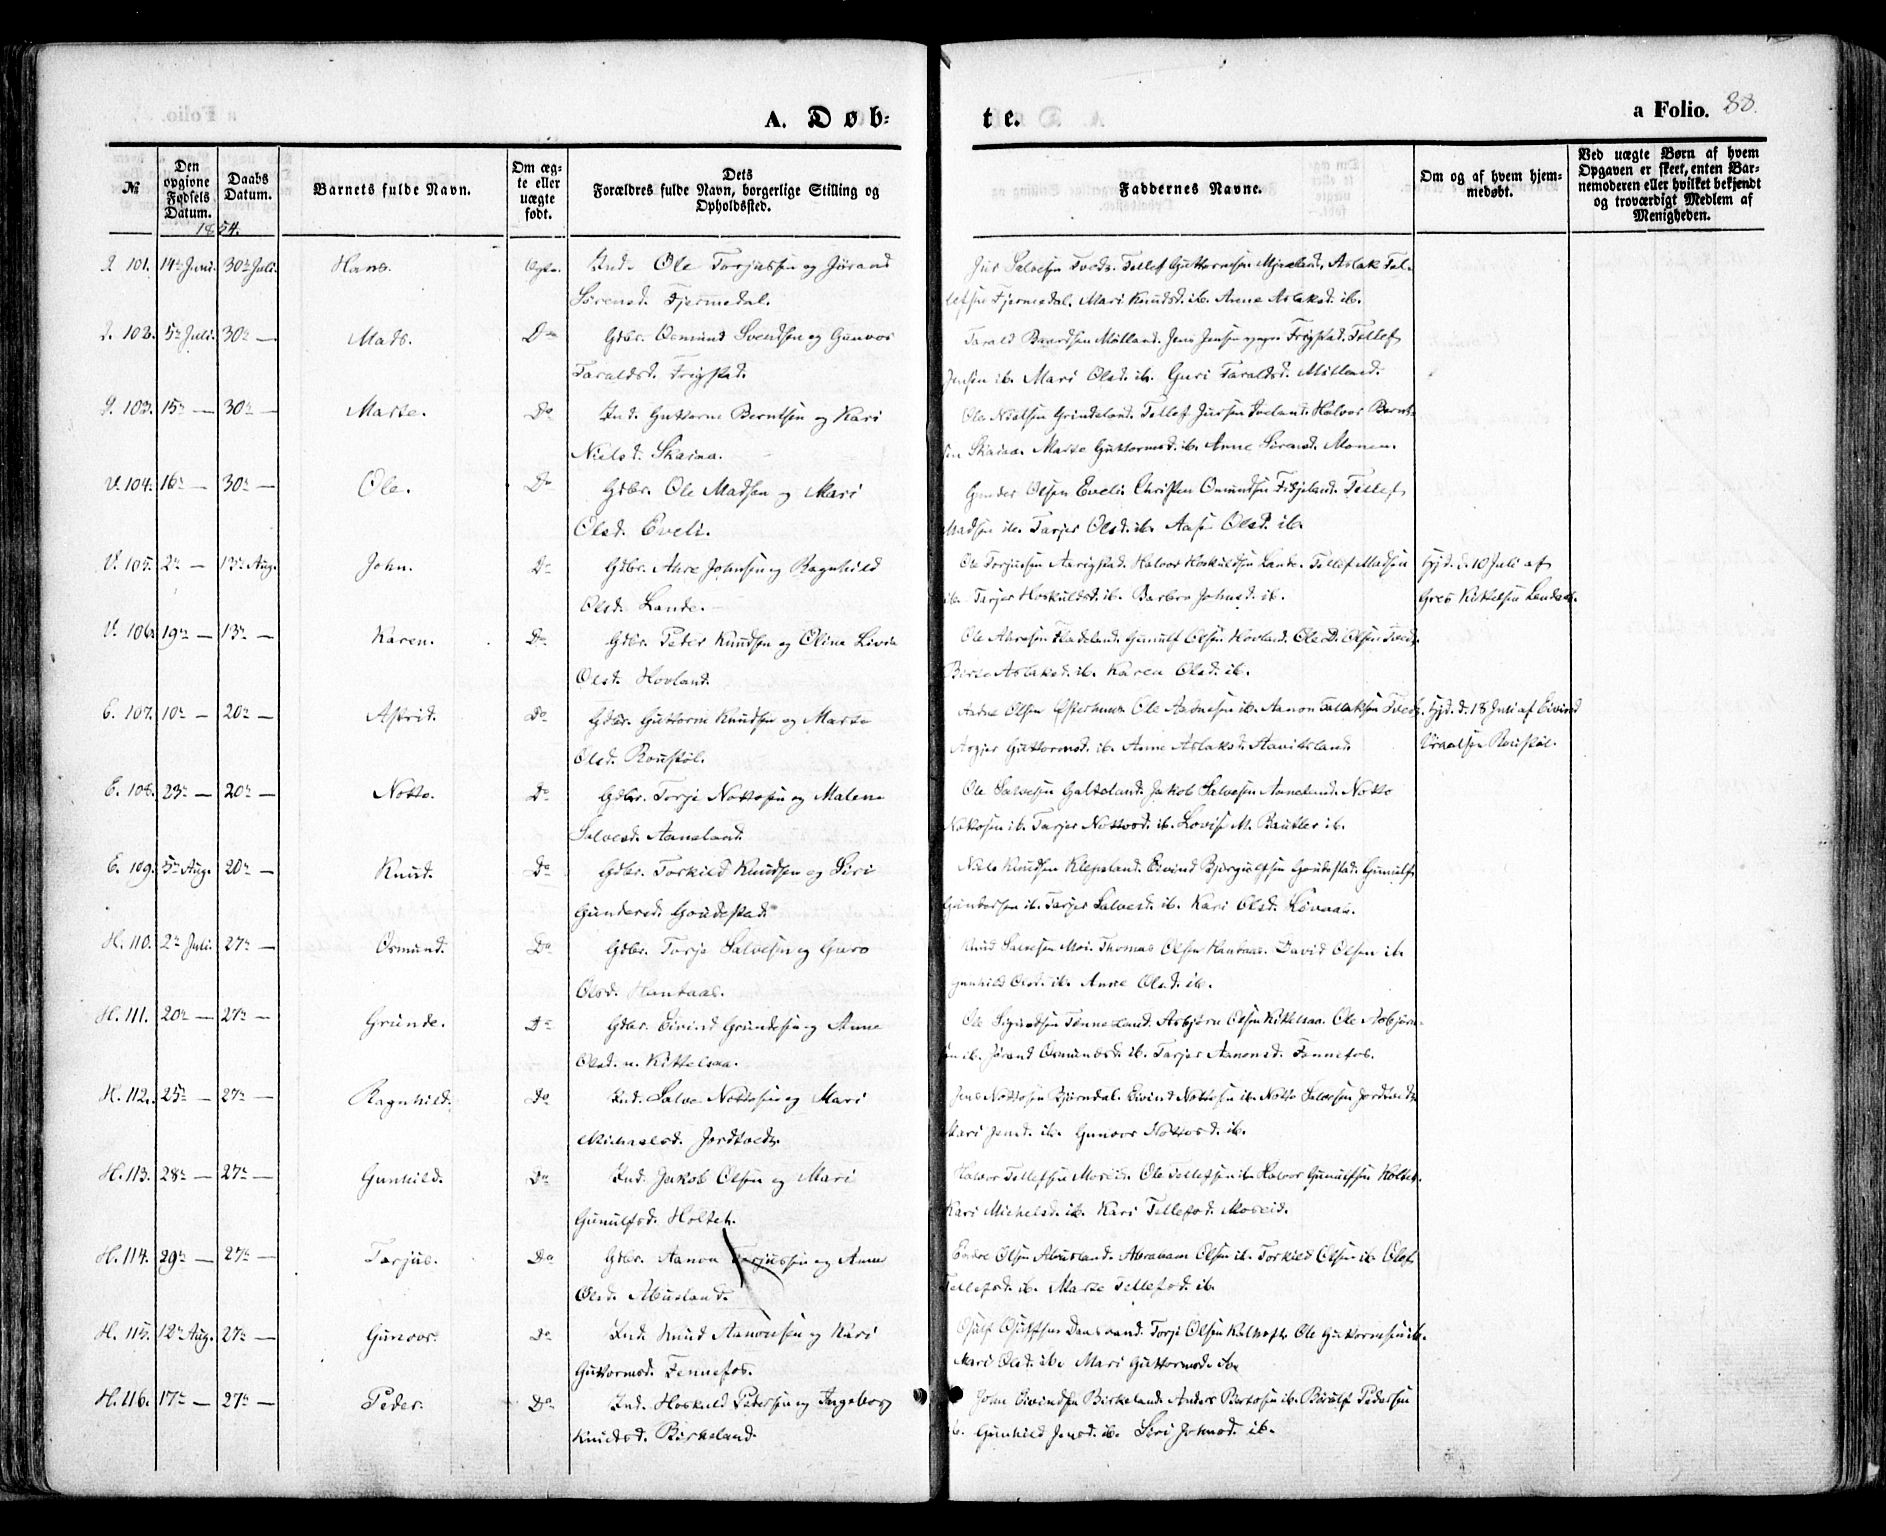 A. Døb=
te.
a Folio. 88.
№
Den opgivne Fødsels Datum.
Daabs Datum.
Barnets fulde Navn.
Om ægte eller uægte født.
Dets Forældres fulde Navn, borgerlige Stilling og Opholdssted.
Faddernes Navne.
Om og af hvem hjemmedøbt.
Ved uægte Børn af hvem Opgaven er skeet, enten Barnemoderen eller hvilket bekjendt og troværdigt Medlem af Menigheden.
1854.
101. 14de Juni. 30te Juli. Hans. Ægte. Ind. Ole Torjussen og Jørand
Sørensd. Fjermedal.
Salvesen Tveds. Tellef Guttormsen Mjaaland. Aslak Tel-
lefsen Fjermedal. Mari Knudsd. ib. Anne Aslaksd. ib.
102. 5te Juli. 30te — Mads. Do Gdbr. Osmund Svendsen og Gunvor
Taraldsd. Frigstad.
Tarald Baardsen Mølland. Jens Jensen yngre Frigstad. Tellef
Jensen ib. Mari Olsd. ib. Guri Taraldsd. Mölland.
103. 15de — 30te — Marte. Do Ind. Guttorm Berntsen og Kari
Nielsd. Skaiaa.
Ole Nielsen Grindeland. Tellef Jursen Iveland. Halvor Bernt-
sen Skaiaa. Marte Guttormsd. ib. Anne Sørensd. Monen.
V. 104. 16de — 30te — Ole. Do Gdbr. Ole Madsen og Mari
Olsd. Eveli.
Gunder Olsen Eveli. Christen Omundsen Frøjeland. Tellef
Madsen ib. Tarjer Olsd. ib. Aase Olsd. ib.
V. 105. 2de — 13de Aug. John. Do Gdbr. Ahre Johnsen og Ragnhild
Olsd. Lande.
Ole Torjussen Aarigstad. Halvor Hoskuldsen Lande. Tellef Madsen
ib. Tarjer Hoskuldsd. ib. Barbro Johnsd. ib.
Hjd. d. 10 Juli af
Kittelsen Landaas.
V. 106. 19de — 13de — Karen. Do Gdbr. Peder Knudsen og Oline Livia
Olsd. Hovland.
Ole Ahresen Fladeland. Gunulf Olsen Hovland. Ole D. Olsen Tveds.
Aslaksd. ib. Karen Olsd. ib.
E. 107. 10de — 20de — Astrid. Do Gdbr. Guttorm Knudsen og Marte
Olsd. Roustøl.
Aadne Olsen Ole Aadnesen ib. Aanon Tellefsen Tveds.
Asgjer Guttormsd. ib. Anne Aslaksd. Stavitsland.
Hjd. d. 18 Juli af Eivind
Vraalsen Roustøl.
E. 108. 23de — 20de — Notto. Do Gdbr. Torje Nottosen og Malene
Salvesd. Aaneland.
Ole Salvesen Galteland. Jakob Salvesen Aaneland. Notto
Nottosen ib. Tarjer Nottosd. ib. Lovise M. Beutler ib.
E. 109. 5te Aug. 20de — Knud. Do Gdbr. Torkild Knudsen og Siri
Gundersd. Goudestad.
Niels Knudsen Klepsland. Eivind Bjorgulfsen Goudestad. Gunulf
Gundersen ib. Tarjer Salvesd. ib. Kari Olsd. Høvaas.
H. 110. 2den Juli. 27de — Osmund. Do Gdbr. Torje Salvesen og Guro
Olsd. Hantaas.
Knud Salvesen Moi. Thomas Olsen Hantaas. David Olsen ib.
Gunhild Olsd. ib. Anne Olsd. ib.
H. 111. 20de — 27de — Grunde. Do Gdbr. Eivind Grundesen og Anne
Olsd. n. Kittelsaa.
Ole Sigurdsen Tønnesland. Asbjørn Olsen Kittelsaa. Ole Asbjørn-
sen ib. Jørand Osmundsd. ib. Tarjer Aanonsd. Fennefos.
H. 112. 25de — 27de — Ragnhild. Do Ind. Salve Nottosen og Mari
Michaelsd. Jordtvedt.
Jens Nottosen Bjørndal. Eivind Nottosen ib. Notto Salvesen Jordtvedt.
Mari Jensd. ib. Gunvor Nottosd. ib.
H. 113. 28de — 27de — Gunhild. Do Ind. Jakob Olsen og Mari
Gunulfsd. Holtet.
Halvor Tellefsen Moseid. Ole Tellefsen ib. Halvor Gunulfsen Holtet.
Kari Michelsd. ib. Kari Tellefsd. Moseid.
H. 114. 29de — 27de — Tarjus. Do Gdbr. Aanon Torjussen og Anne
Olsd. Abusland.
Endre Olsen Abusland. Abraham Olsen ib. Torkild Olsen ib. Oles
Tellefsd. ib. Marte Tellefsd. ib.
H. 115. 12te Aug. 27de — Gunvor. Do Ind. Knud Aanonsen og Kari
Guttormsd. Fennefos.
Osulf Osulfsen Dansvand. Torje Olsen Kalhoft. Ole Guttormsen ib.
Mari Olsd. ib. Mari Guttormsd. ib.
H. 116. 17de — 27de — Peder. Do Ind. Hoskuld Pedersen og Ingeborg
Knudsd. Birkeland.
John Eivindsen Birkeland. Anders Bertosen ib. Pedersen
ib. Gunhild Jensd. ib. Siri Johnsd. ib.